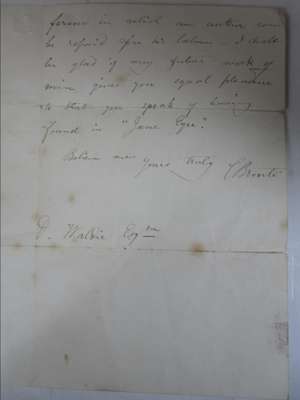 forence in which an author can
be repaid for his labour. I shall
be glad if any future work of
mine gives you equal pleasure
to that you speak of having
found in "Jane Eyre".
Believe me
yours truly C Brontë
D. Waldie Esqre